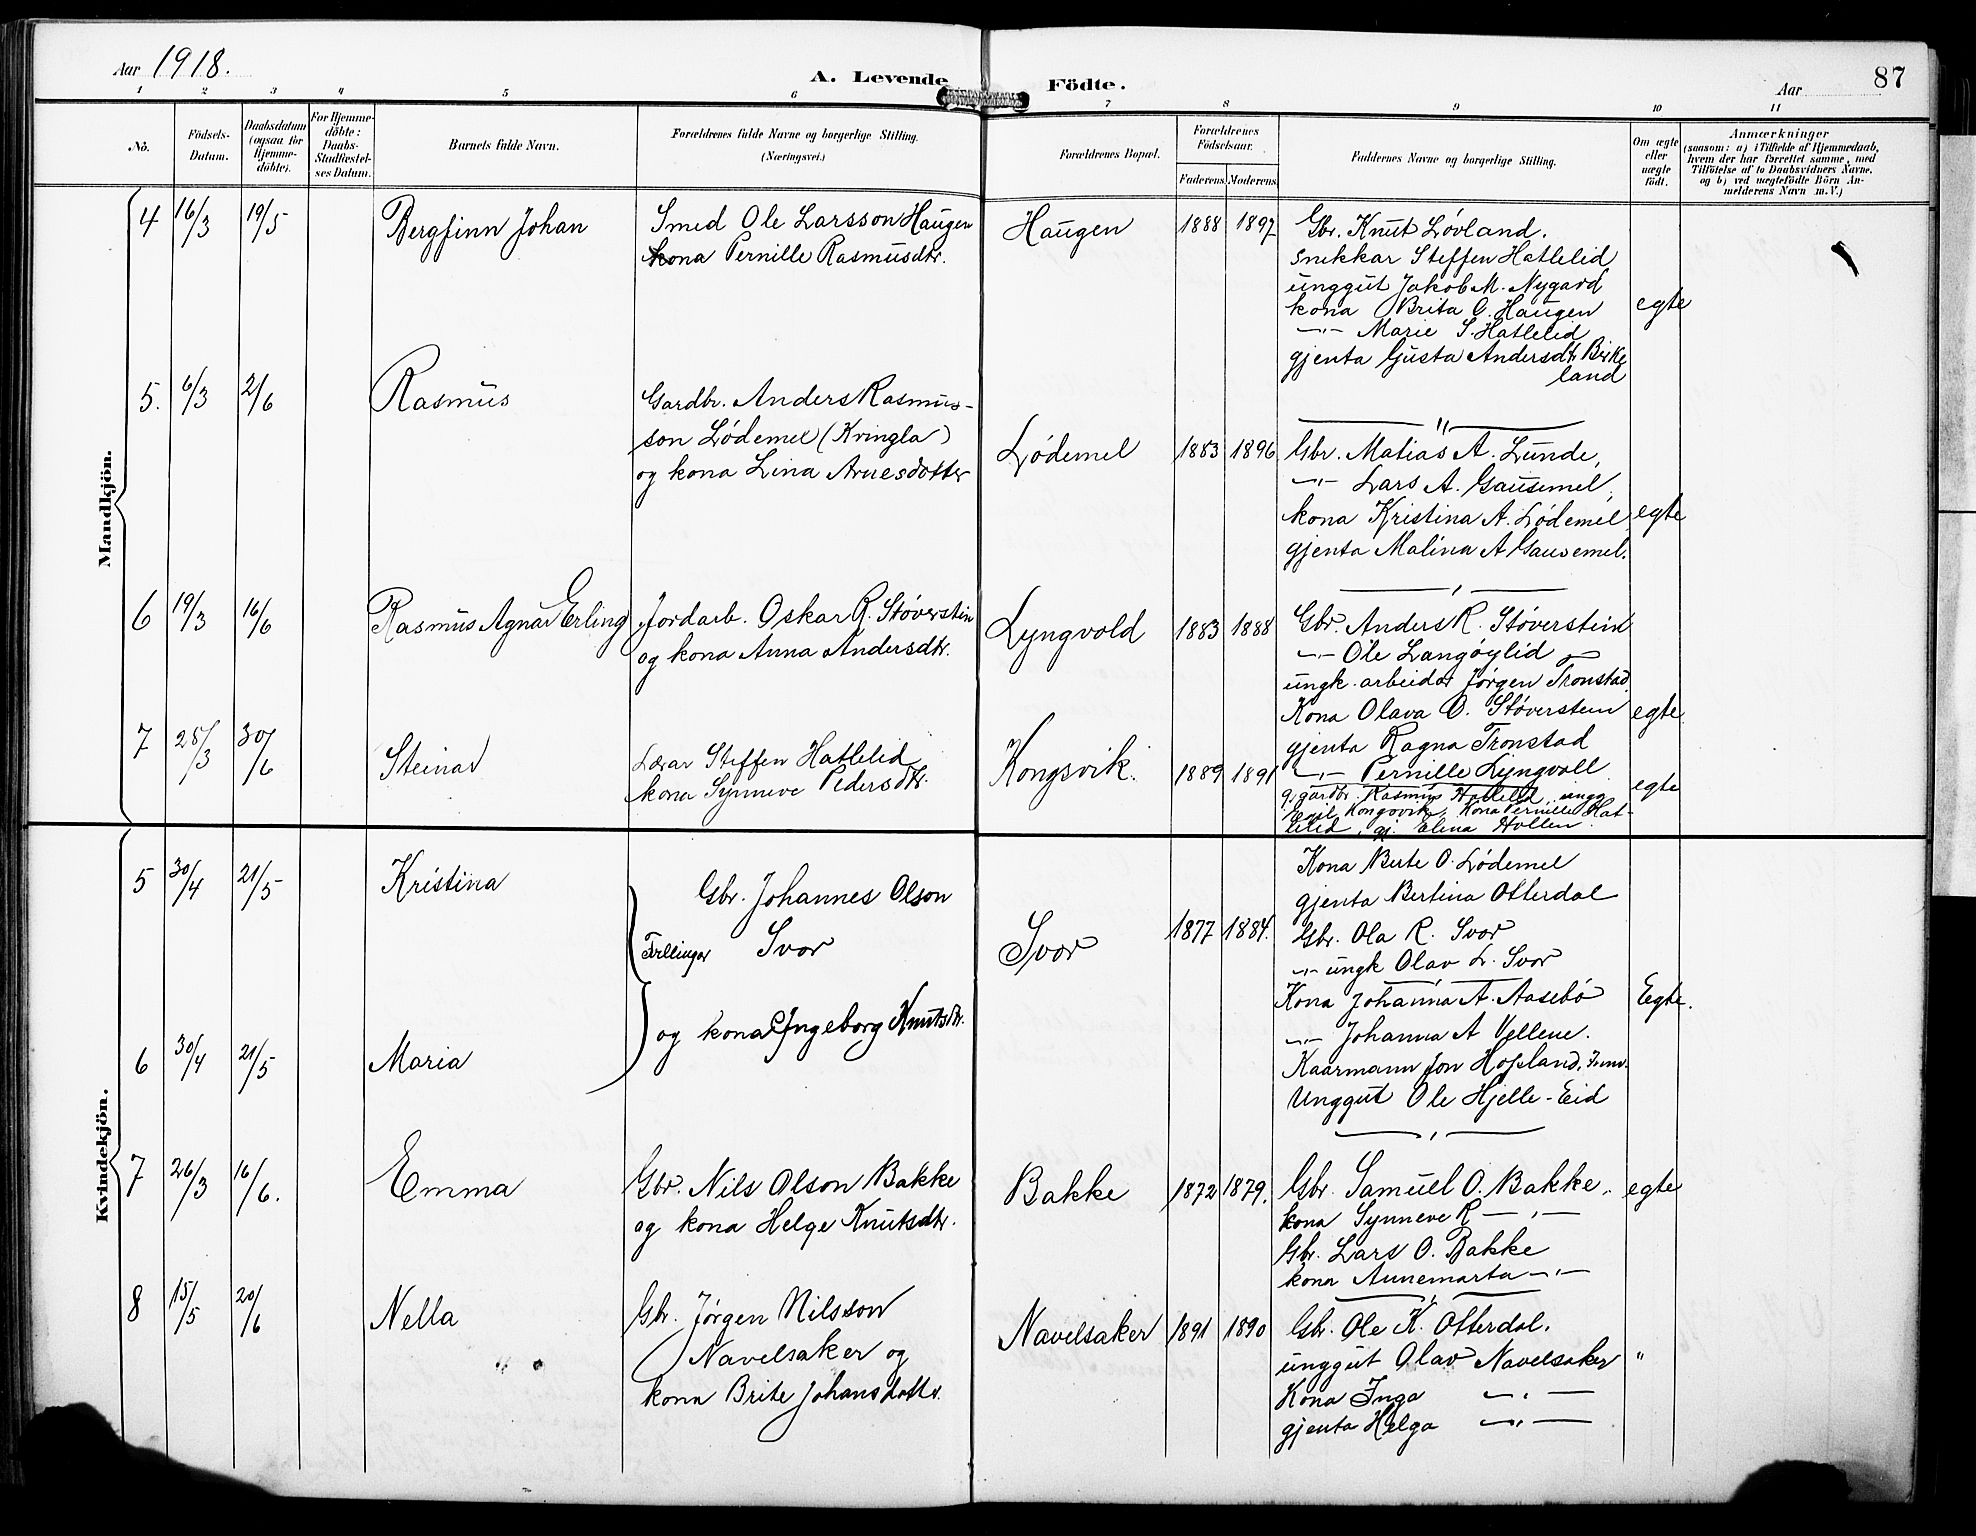 Aar 1918.
A. Levende Födte.
Aar
87
1 2 3 4 5 6 7 8 9 10 11
No.
Födsels-
Datum.
Daabsdatum
(ogsaa for
Hjemme-
döbte).
For Hjemme-
döbte:
Daabs-
Stadfæstel-
ses Datum.
Barnets fulde Navn.
Forældrenes fulde Navne og borgerlige Stilling.
(Næringsvei.)
Forældrenes Bopæl.
Forældrenes
Födselsaar.
Faderens Moderens
Faddernes Navne og borgerlige Stilling.
Om ægte
eller
uægte
födt.
Anmærkninger
(saasom: a) i Tilfælde af Hjemmedaab,
hvem der har forrettet samme, med
Tilföielse af to Daabsvidners Navne,
og b) ved uægtefödte Börn An-
melderens Navn m. V.)
Mandkjön.
4 16/3 19/5 Bergfinn Johan
Smed Ole Larsson Haugen
kona Pernille Rasmusdtr.
Haugen 1888 1897
Gbr. Knut Løvland.
snekkar Steffen Hatlelid
unggut Jakob M. Nygard
kona Brita O. Haugen
—"— Marie S. Hatlelid
gjenta Gusta Andersdt. Brike
land
egte
5. 6/3 2/6 Rasmus
Gardbr. Anders Rasmus-
son Lødemel (Kvingla)
og kona Lina Arnesdotter
Lødemel 1883 1896
Gbr. Matias A. Lunde,
—"— Lars A. Gausemel,
kona Kristina A. Lødemel
gjenta Malina A Gausemel.
egte
6 19/3 16/6 Rasmus Agnar Erling
Jordarb. Oskar R. Støverstein
og kona Anna Andersdtr.
Lyngvold 1883 1888
Gbr. Anders R. Støverstein
—"— Ole Langøylid
ungk. arbeidar Jørgen Tronstad
Kona Olava O. Støverstein
gjenta Ragna Tronstad
—"— Pernille Lyngvoll
egte.
7 25/3 30/6 Steinar
Lærar Steffen Hatlelid
kona Synneve Pedersdtr.
Kongsvik. 1889 1891
gardbr. Rasmus Hatlelid, ungg
Emil Kongsvik, Kona Pernille Hat-
lelid, gj. Elina Hollen.
egte
Kvindekjön.
5 30/4 21/5 Kristina
Gbr. Johannes Olson
Tvillingar Svor
og kona Ingeborg Knutsdtr.
Svor 1877 1884.
Kona Berte O. Lødemel
gjenta Bertina Otterdal
Gbr. Ola R. Svor
—"— ungk Olav L. Svor
6 30/4 21/5 Maria
Kona Johanna A. Aasebø
—"— Johanna A Vellene.
Kaarmann Jon Hopland,
Unggut Ole Hjelle-Eid
Egte.
7 26/3 16/6. Emma
Gbr. Nils Olson Bakke
og kona Helge Knutsdtr.
Bakke 1872 1879.
Gbr. Samuel O. Bakke.
kona Synneve R —"—
Gbr. Lars O. Bakke
kona Annemarta —"—
egte
8 15/5 20/6 Nella
Gbr. Jørgen Nilsson
Navelsaker og
kona Brite Johansdotter.
Navelsaker 1891 1890
Gbr. Ole K. Otterdal.
unggut Olav Navelsaker
Kona Inga —"—
gjenta Helga —"—
"